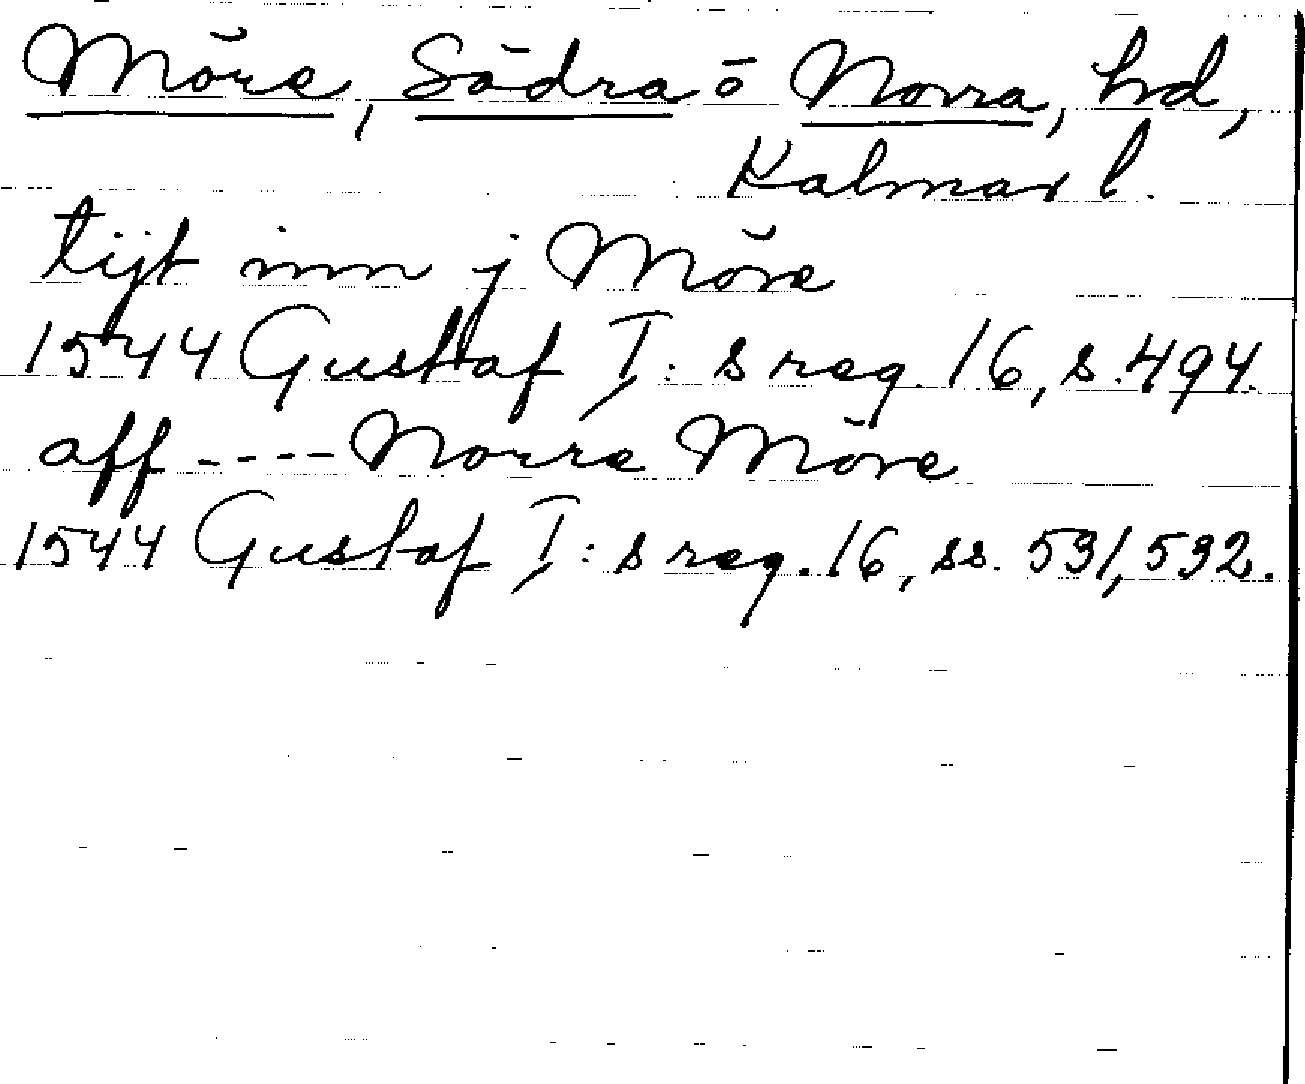 Möre, Södra o Norra, hd,
Kalmar l.
tijt inn j Möre
1544 Gustaf I:s reg. 16, s. 494.
aff ---- Norre Möre
1544 Gustaf I:s reg. 16, ss. 531, 532.